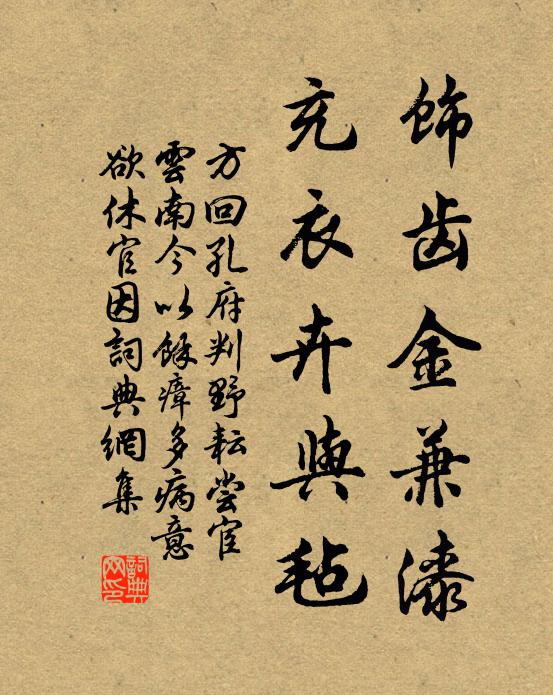 飾齒金兼漆
充衣卉與氈
方回孔府判野耘嘗宦
雲南今以餘瘴多病意
欲休官因詞典網集
詞典
网印